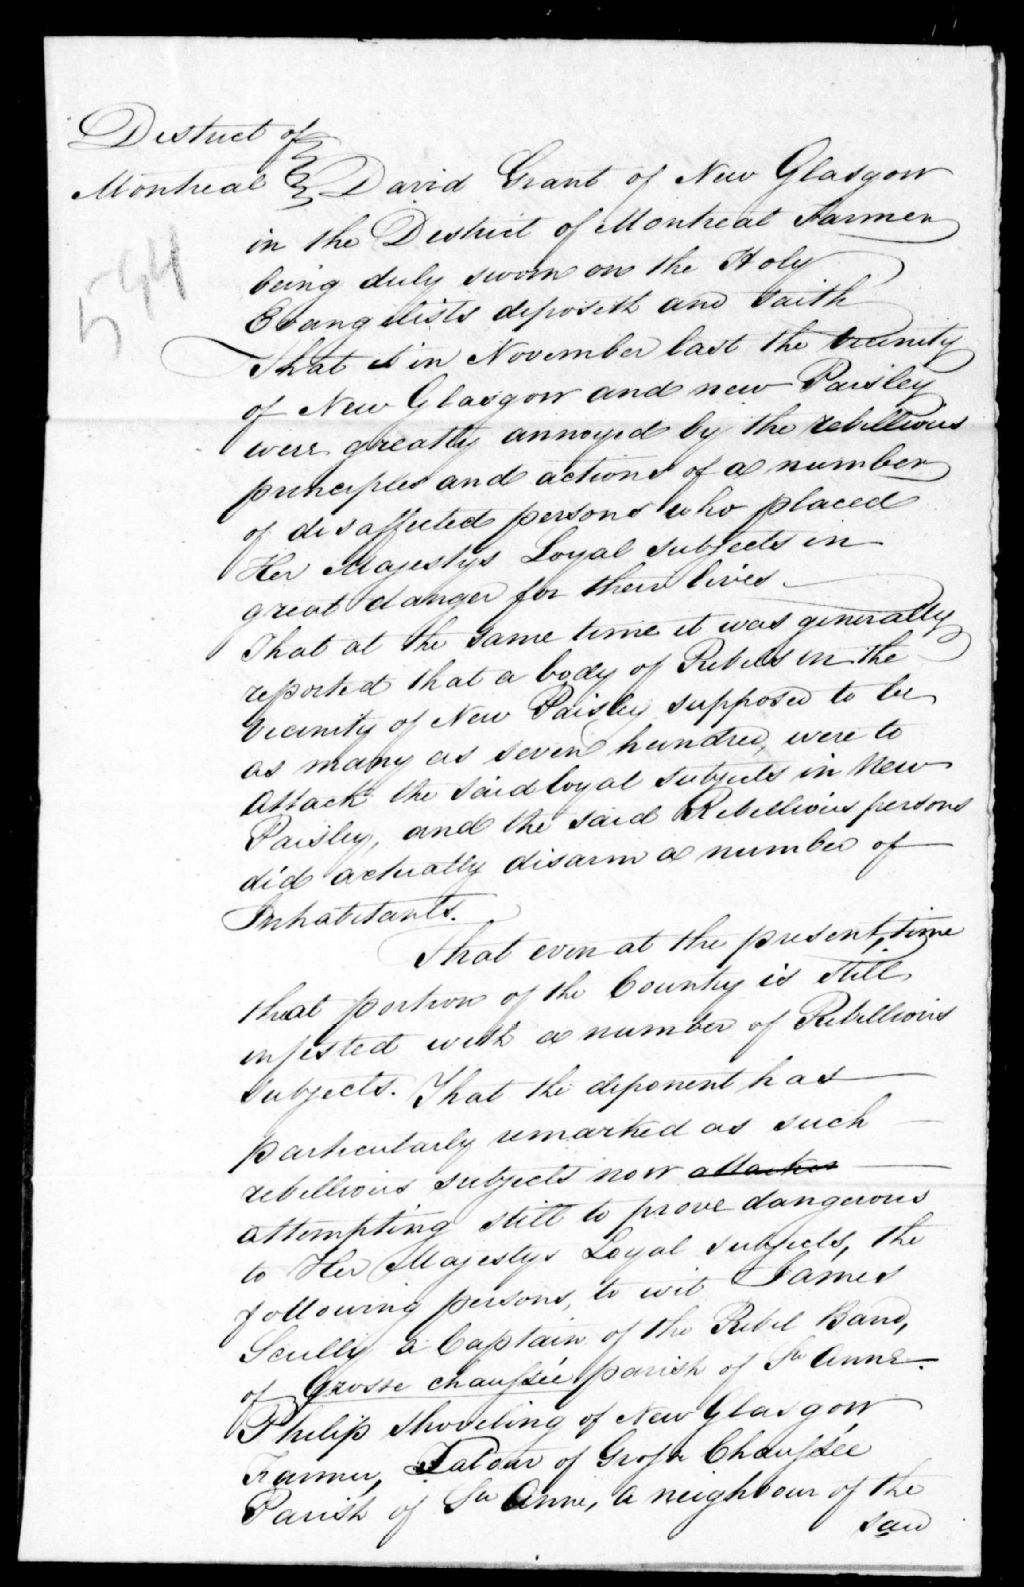 District of
Montreal David Grant of New Glasgow
in the District of Montreal Farmer
594
being duly sworn on the Holy
Evangelists deposeth and saith
That in November last the vicinity
of New Glasgow and new Paisley
were greatly annoyed by the rebellious
principles and actions of a number
of disaffected persons who placed
Her Majestys Loyal subjects in
great danger for their lives
That at the same time it was generally
reported that a body of Rebels in the
vicinity of New Paisley supposed to be
as many as seven hundred, were to
attack the said loyal subjects in New
Paisley, and the said Rebellious persons
did actually disarm a number of
Inhabitants.
That even at the present, time
that portion of the Country is still
infested with a number of Rebellious
subjects. That the deponent has
particularly remarked as such
rebellious subjects now
attempting still to prove dangerous
to Her Majestys Loyal subjects, the
following persons, to wit James
Scully a Captain of the Rebel Band,
of Grosse chaussée parish of Ste Anne
Philip Shoveling of New Glasgow
Farmer, Latour of Grosse Chaussée
Parish of Ste Anne, a neighbour of the
said